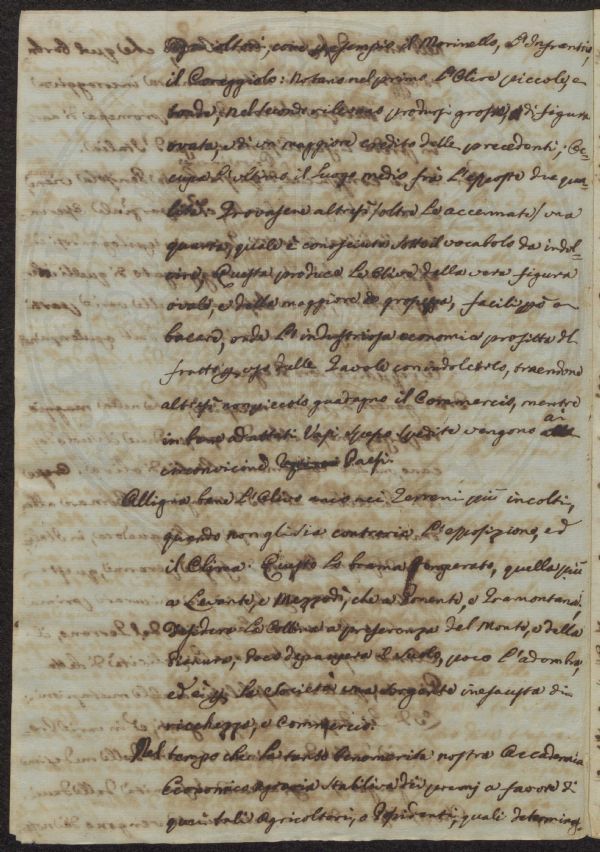 Agricoltori, come per esempio il Morinello, L'Infrantoio,
il Coreggiolo: Notano nel primo L'Olive piccole, e
tonde, nel secondo rilevano prodursi grosse, di figura
ovata, e di un maggiore credito delle precedenti; Oc-
cupa L'ultimo il luogo medio fra L'esposte due qua-
lità. Trovasene altresì /oltre Le accennate/ una
quarta, quale è conosciuta sotto il vocabolo da indol-
cire; Questa produce Le Olive della vera figura
ovale, e della maggiore grossezza, facili però a
bacare, onde L'industriosa economia profitta del
frutto per uso delle Tavole con indolcirlo, traendone
altresì non piccolo guadagno il Commercio, mentre
in bene adattati Vasi spesso spedite vengono ai
circonvicini Paesi.
Alligna bene L'Olivo nei Terreni più incolti,
quando non gli sia contraria L'esposizione, ed
il Clima. Questo Lo brama Temperato, quella più
a Levante, e Mezzodì, che a Ponente, e Tramontana.
Desidera La Collina a preferenza del Monte, e della
Pianura, poco L'adombra,
ed è per La Società una sorgente inesausta di
ricchezze, e Commercio.
Nel tempo che La tanto benemerita nostra Accademia
Economico Agraria stabiliva dei premj a favore di
quei tali Agricoltori, o Possidenti, quali determinas-